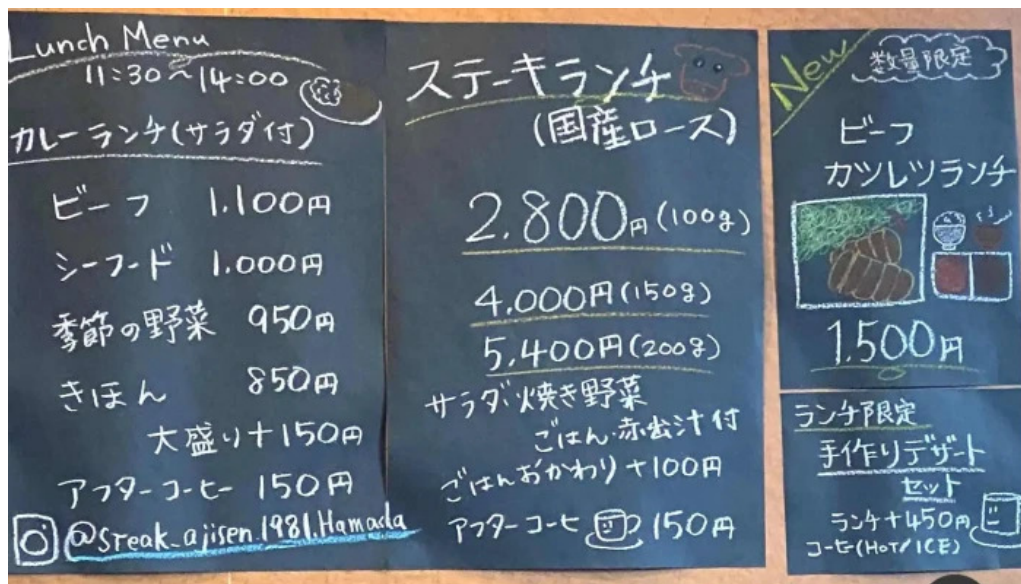 Lunch Menu
11:30~14:00
カレーランチ(サラダ付)
ビーフ 1.100円
シーフード 1.000円
季節の野菜 950円
きほん 850円
大盛り+150円
アフターコーヒー 150円
@sreak_ajisen.1981.Hamada
ステーキランチ
(国産ロース)
2.800円(100g)
4.000円(150g)
5.400円(200g)
サラダ・焼き野菜
ごはん・赤出汁付
ごはんおかわり+100円
アフターコーヒ 150円
New
数量限定
ビーフ
カツレツランチ
1.500円
ランチ限定
手作りデザート
セット
ランチ+450円
コーヒー(HOT/ICE)